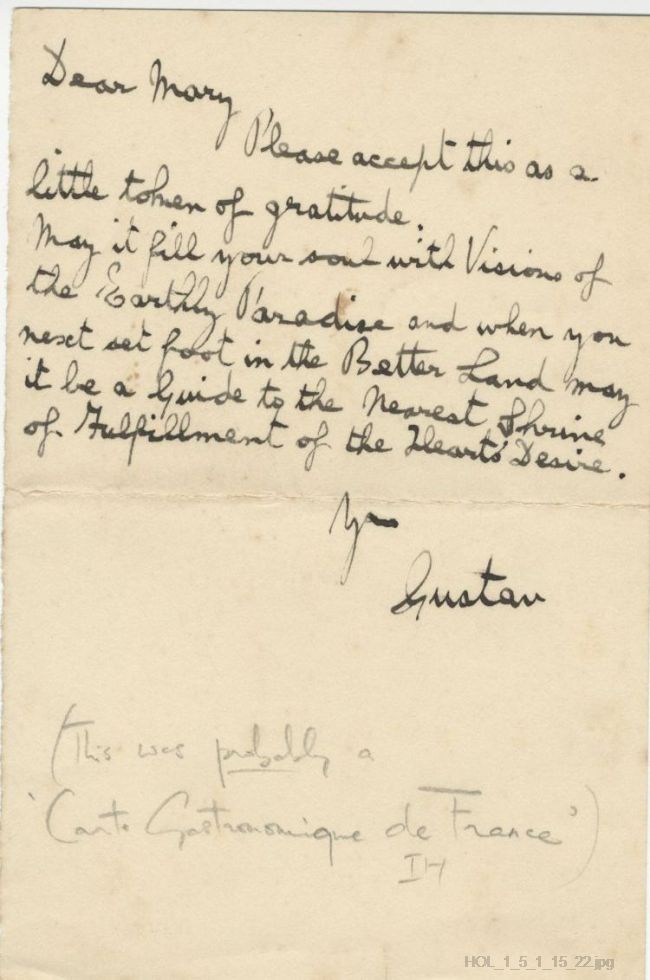 Dear Mary
Please accept this as a
little token of gratitude.
May it fill your soul with Visions of
the Earthly Paradise and when you
next set foot in the Better Land may
it be a Guide to the Nearest Shrine
of Fulfillment of the Hearts' Desire.
Yrs
Gustav
(This was probably a
'Carte Gastronomique de France')
IH
HOL_1_5_1_15_22.jpg